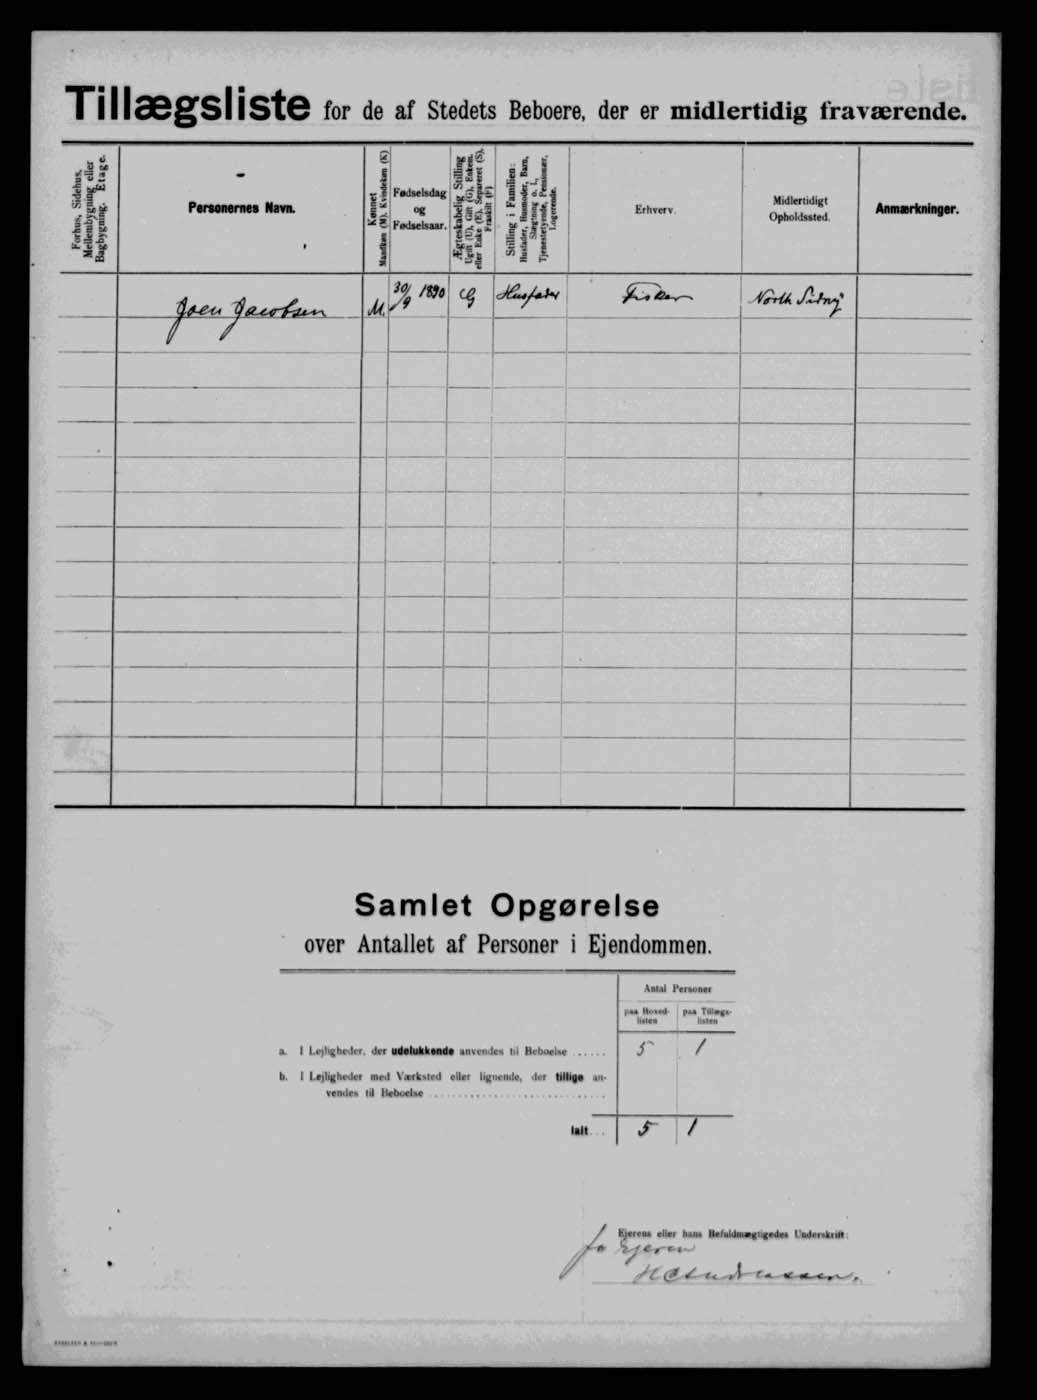 Tillægsliste for de af Stedets Beboere, der er midlertidig fraværende.
Forhus, Sidehus,
Mellembygning eller
Bagbygning. Etage.
Personernes Navn.
Kønnet
Mandkøn (M). Kvindekøn (K)
Fødselsdag
og
Fødselsaar.
Ægteskabelig Stilling
Ugift (U), Gift (G), Enkem.
eller Enke (E), Separeret (S),
Fraskilt (F)
Stilling i Familien:
Husfader, Husmoder, Barn,
Slægtning o. l.,
Tjenestetyende, Pensionær,
Logerende.
Erhverv.
Midlertidigt
Opholdssted.
Anmærkninger.
Joen Jacobsen M. 30/9 1890 G Husfader Fisker North Sidnÿ
Samlet Opgørelse
over Antallet af Personer i Ejendommen.
Antal Personer
paa Hoved-
listen
paa Tillægs-
listen
a. I Lejligheder, der udelukkende anvendes til Beboelse ...... 5 1
b. I Lejligheder med Værksted eller lignende, der tillige an-
vendes til Beboelse ............................
Ialt... 5 1
Ejerens eller hans Befuldmægtigedes Underskrift:
Ejeren
HCAndreassen.